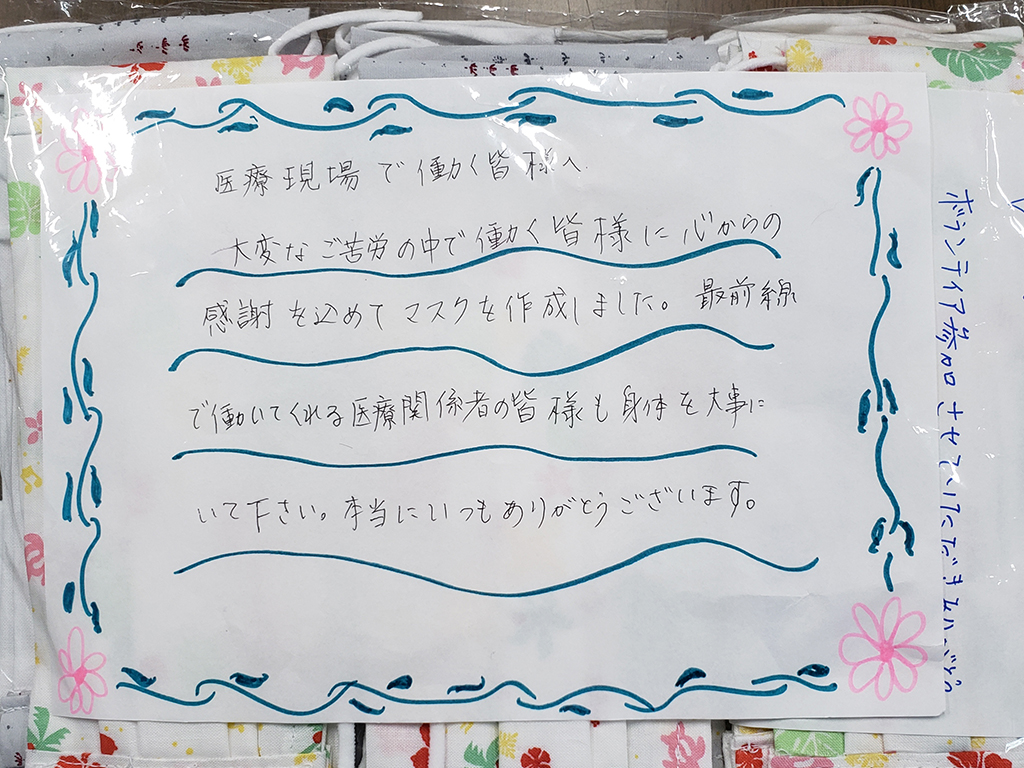 医療現場で働く皆様へ
大変なご苦労の中で働く皆様に心からの
感謝を込めてマスクを作成しました。最前線
で働いてくれる医療関係者の皆様も身体を大事に
いて下さい。本当にいつもありがとうございます。
ボランティア参加させていただき